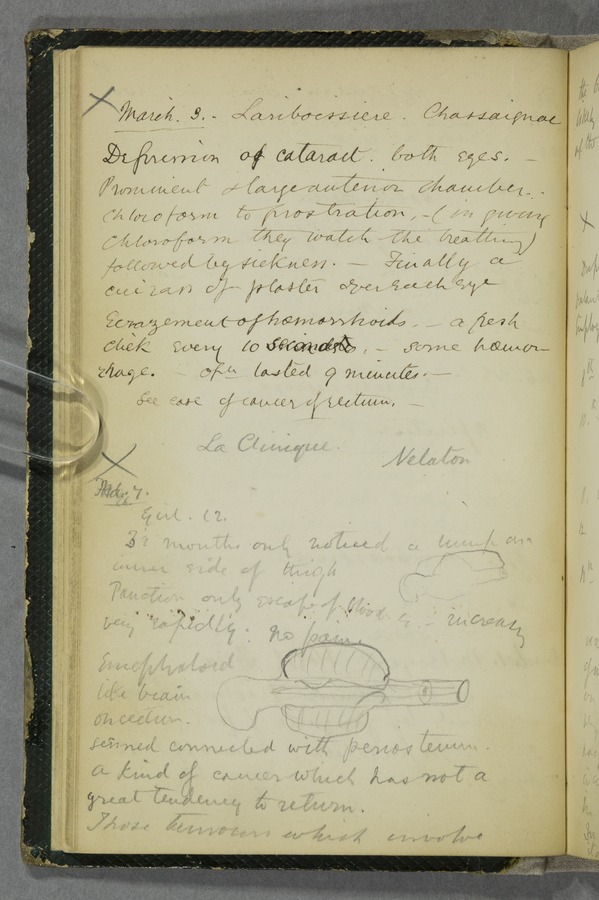 March. 3. - Lariboissiere. Chassaignac
Depression of cataract. both eyes. -
Prominent & large anterior chamber. -
Chloroform to prostration, - (in giving
Chloroform they watch the breathing)
followed by sickness. - Finally a
cuirass of plaster over each eye
Ecrazement of hæmorrhoids. - a fresh
click every 10 seconds. - some hæmor-
rhage. - opn lasted 9 minutes. -
See case of cancer of rectum. -
La Clinique.
Nelaton
7.
Girl. 12.
3½ months only noticed a lump on
inner side of thigh
Punction only escape of blood - increasing
very rapidly. no pain.
Encephaloid
like brain
on section.
seemed connected with periosteum.
a kind of cancer which has not a
great tendency to return.
Those tumours which involve